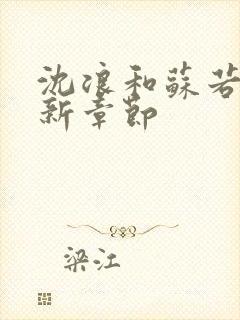 沈浪和蘇若
新章節
梁江